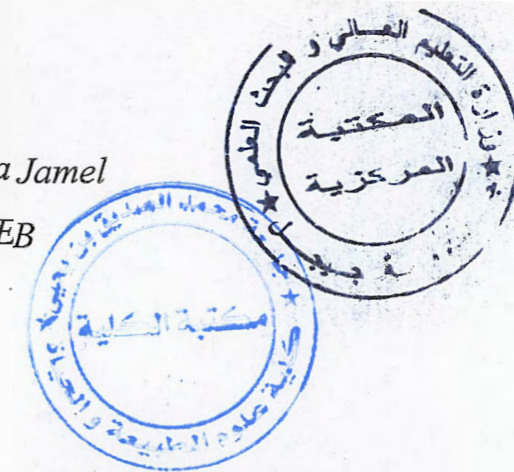 a Jamel
EB
وزارة التعليم العالي و البحث العلمي
المكتبة
المركزية
جامعة محمد الصديق بن يحيى
مكتبة الكلية
كلية علوم الطبيعة و الحياة